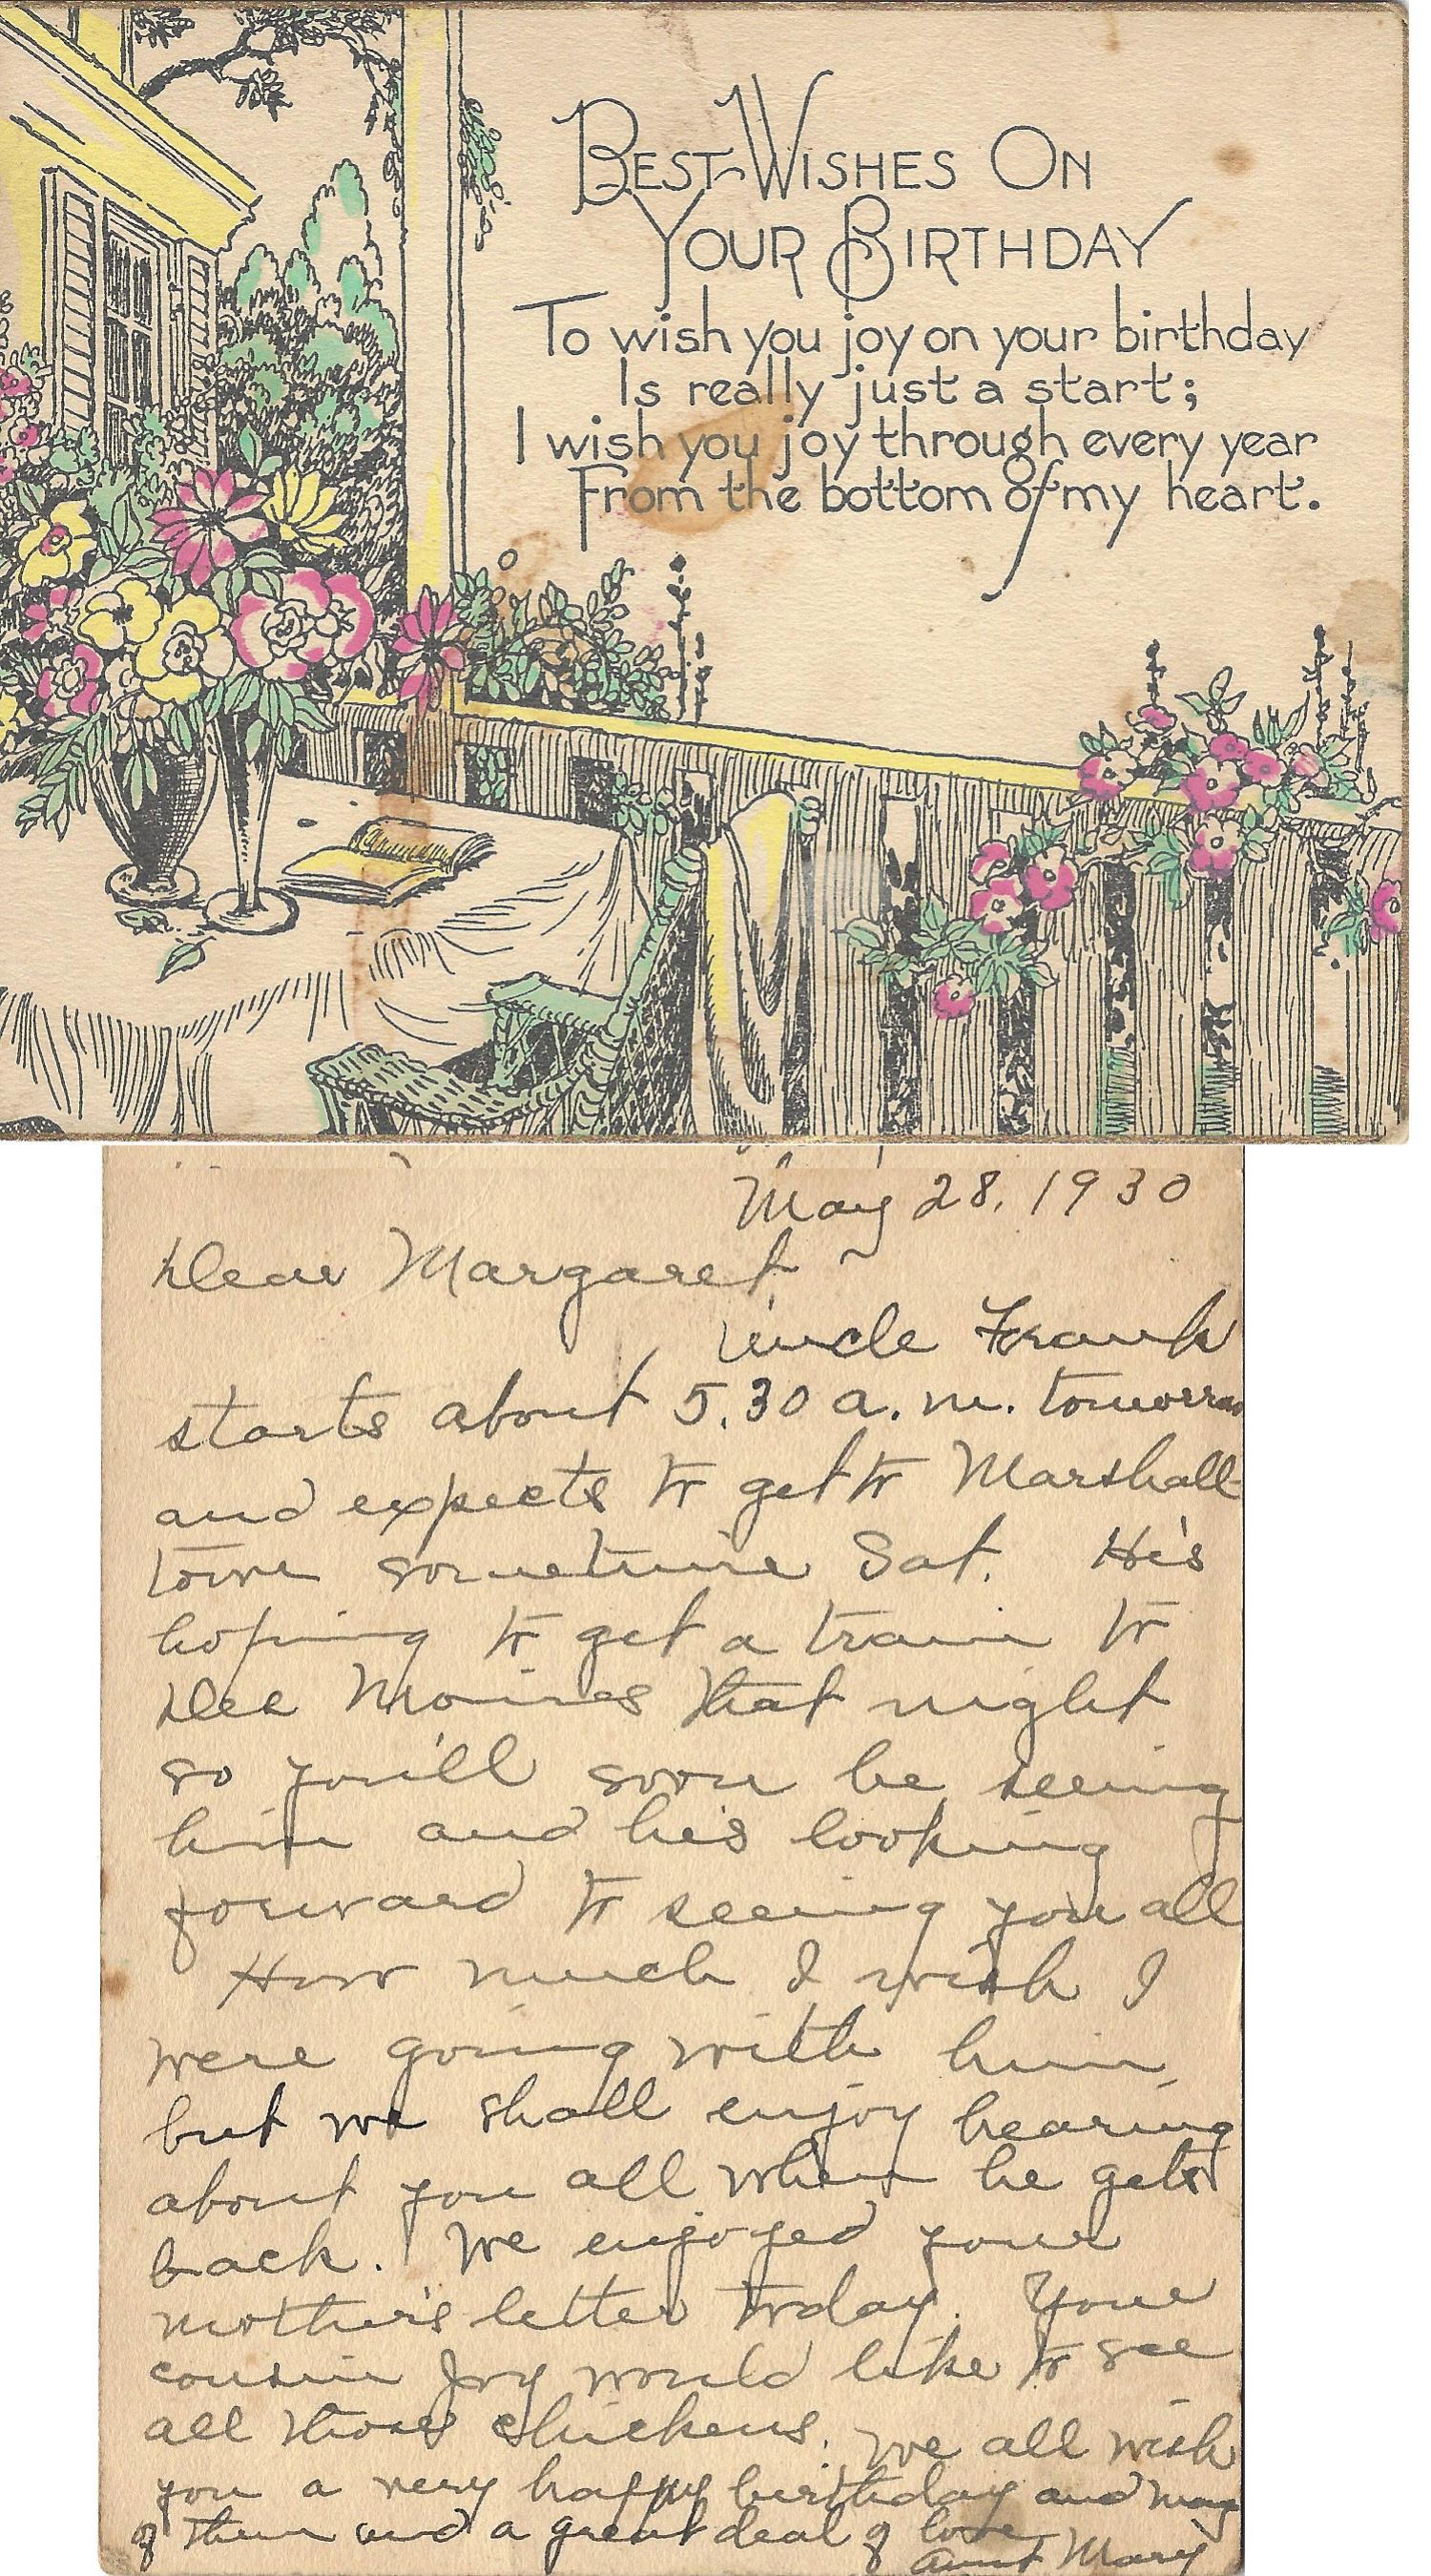 BEST WISHES ON
YOUR BIRTHDAY
To wish you joy on your birthday
Is really just a start;
I wish you joy through every year
From the bottom of my heart.
May 28, 1930
Dear Margaret
Uncle Frank
starts about 5.30 a.m. tomorrow
and expects to get to Marshall
town sometime Sat. He's
hoping to get a train to
Des Moines that night
so you'll soon be seeing
him and he's looking
forward to seeing you all
How much I wish I
were going with him,
but we shall enjoy hearing
about you all when he gets
back. We enjoyed your
mother's letter today. Your
cousin Joy would like to see
all those chickens. We all wish
you a very happy birthday and many
of them and a great deal of love
Aunt Mary